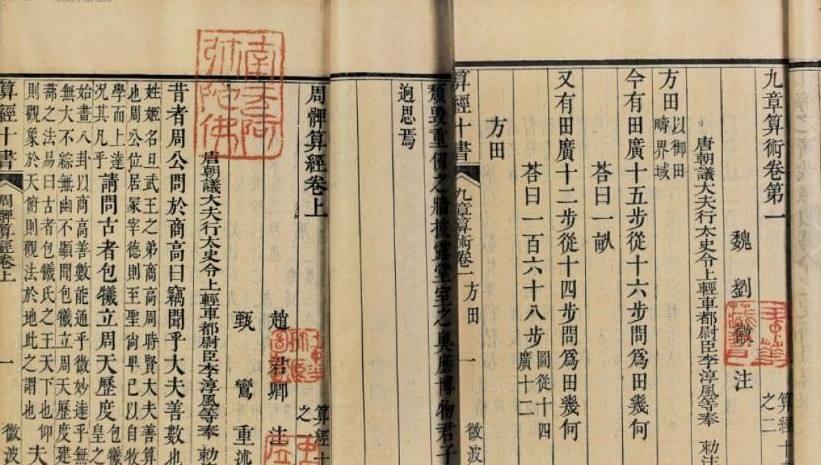 九章算術卷第一
算經十
之二
魏 劉徽 注
唐朝議大夫行太史令上輕車都尉臣李淳風等奉 勑注
方田以御田
疇界域
今有田廣十五步從十六步問爲田幾何
荅曰一畝
又有田廣十二步從十四步問爲田幾何
荅曰一百六十八步圖從十四
廣十二
方田
算經十書
九章算術卷一 方田 一 微波
頹毀重仞之牆披露堂室之奧庶博物君子
迥思焉
南无阿
弥陀佛
周髀算經卷上
算經十
之一
趙君卿 注
甄鸞 重述
唐朝議大夫行太史令上輕車都尉臣李淳風等奉 勑
昔者周公問於商高曰竊聞乎大夫善數也
姓姬名旦武王之弟商高周時賢大夫善算
周公位居冢宰德則至聖尚卑已以自牧
學而上達
況其凡乎請問古者包犧立周天歷度包犧
皇之
始畫八卦以商高善數能通乎微妙達乎無
無大不綜無幽不顯聞包犧立周天歷度建
蔀之法易曰古者包犧氏之王天下也仰
則觀象於天俯則觀法於地此之謂也
算經十書
周髀算經卷上 一 微波